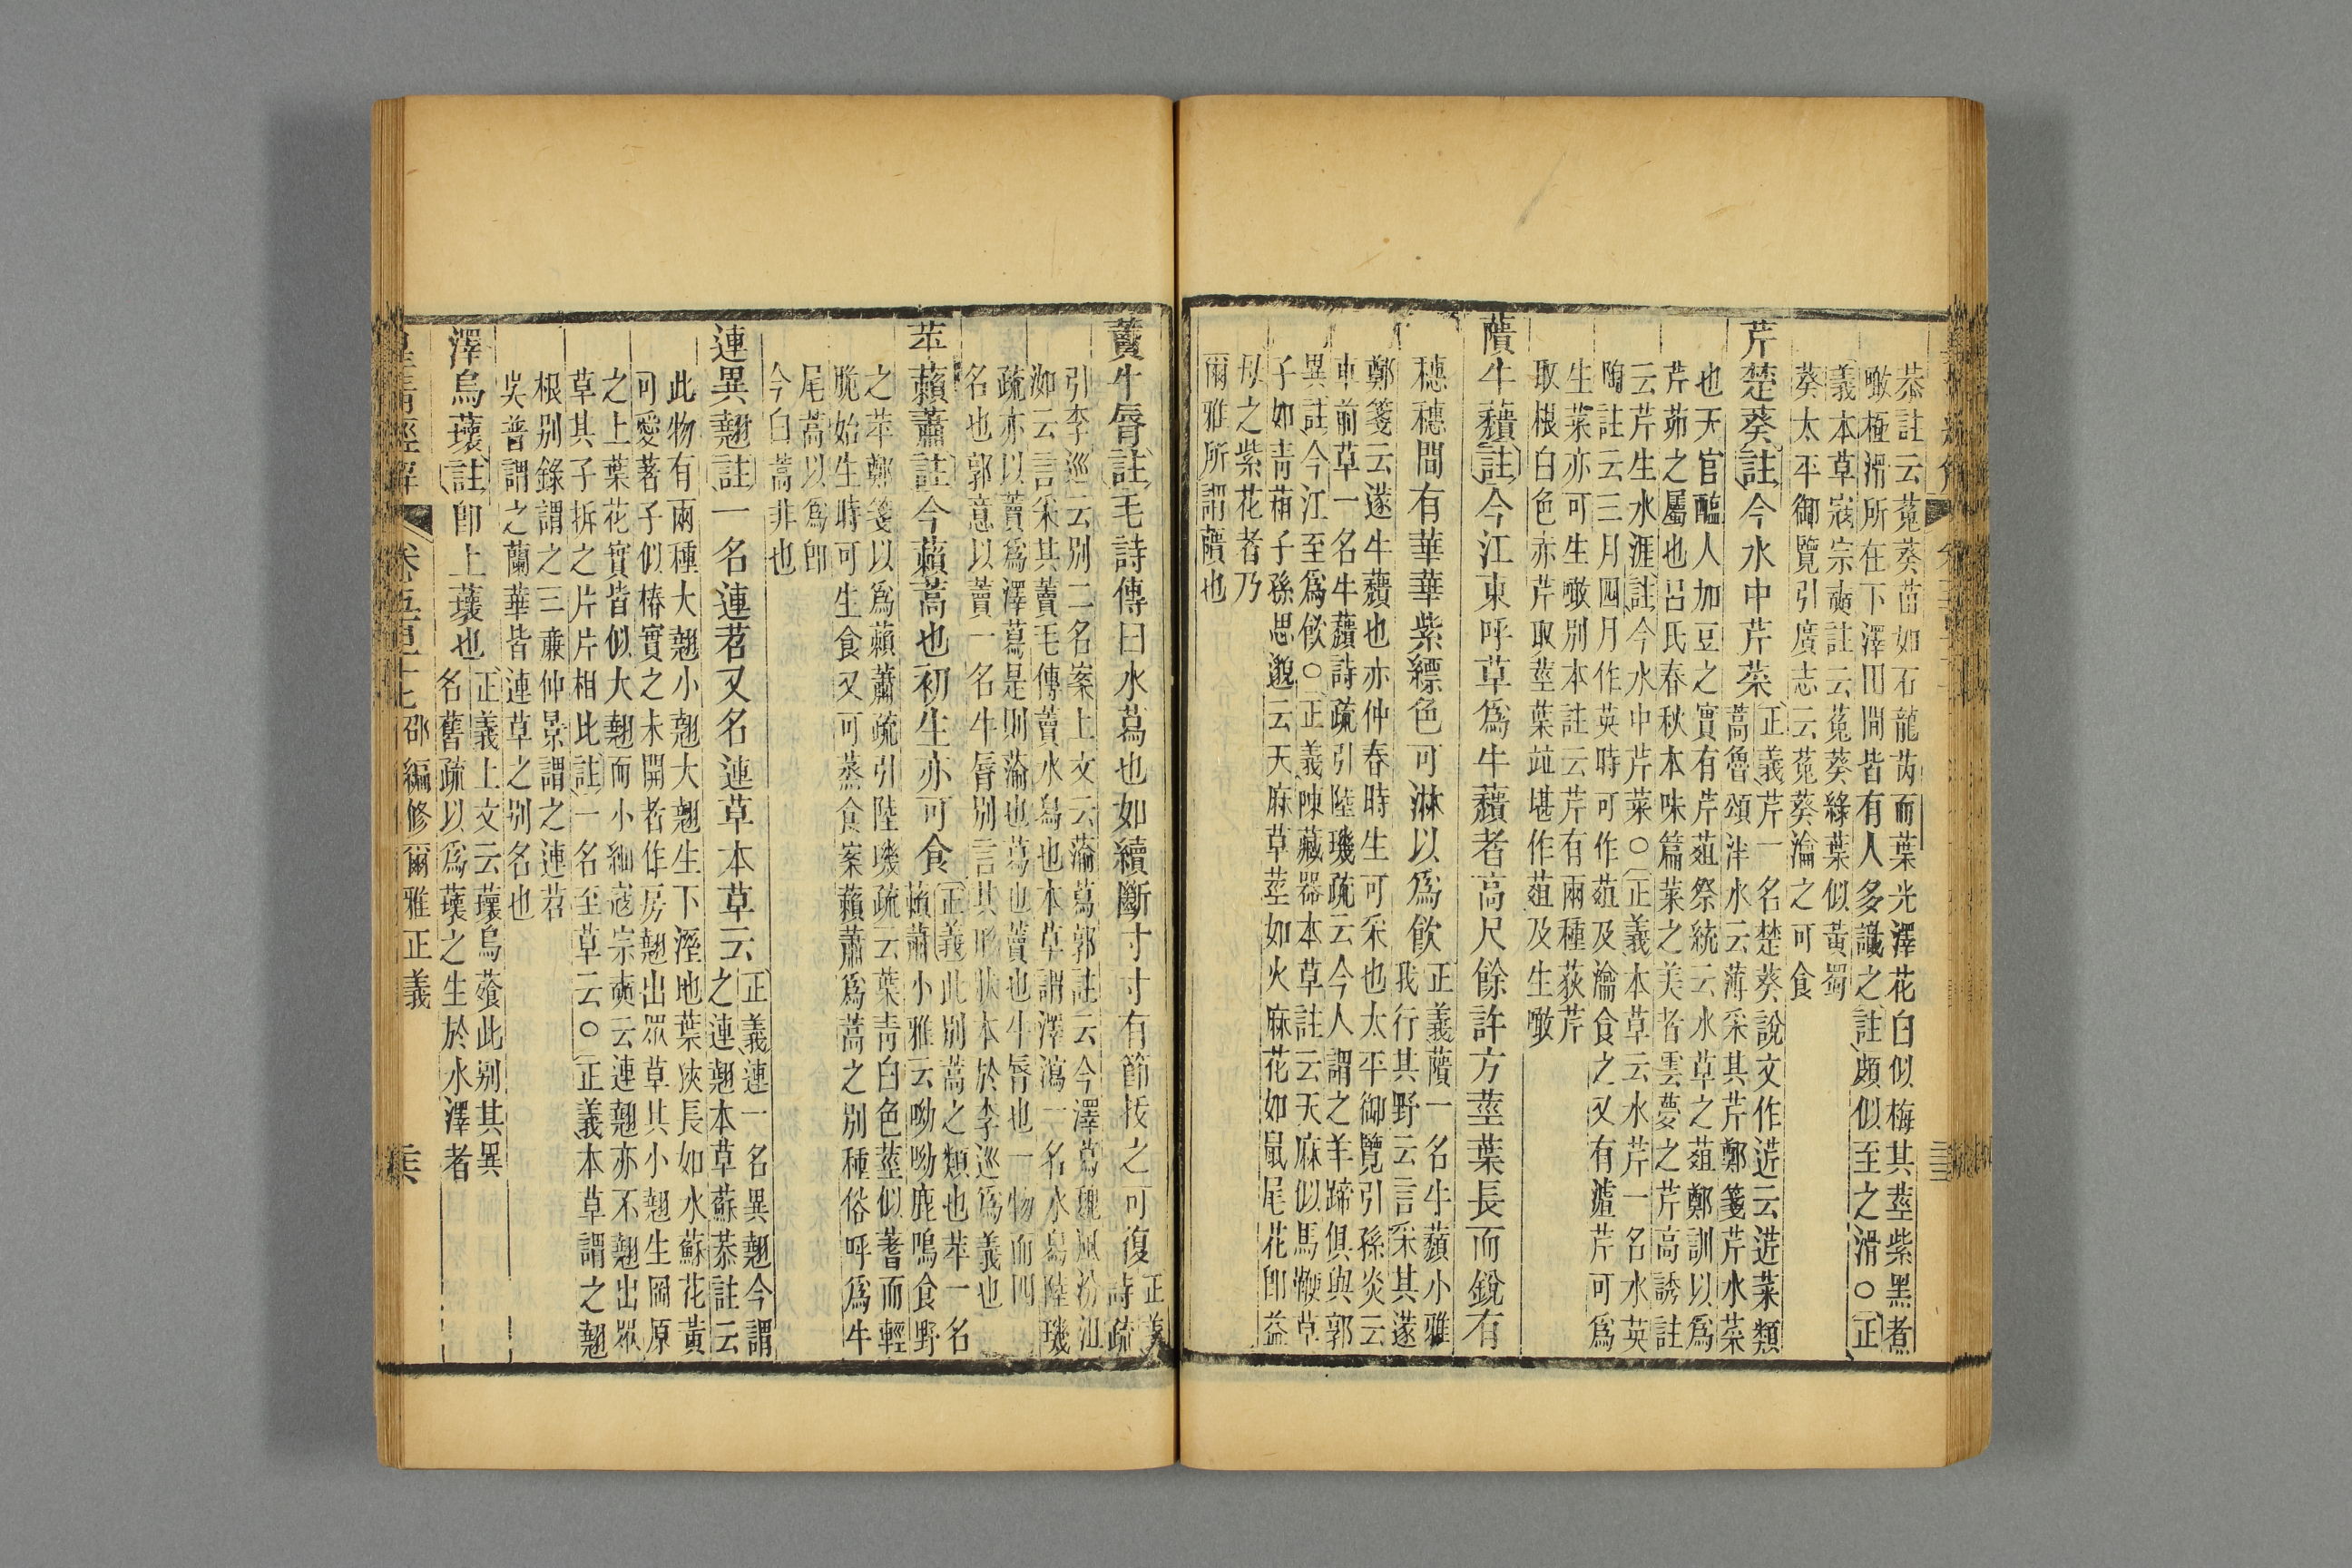 恭註云菟葵苗如石龍芮而葉光澤花白似梅其莖紫黑煮
噉極滑所在下澤田閒皆有人多識之註頗似至之滑○正
義本草寇宗奭註云菟葵綠葉似黃蜀
葵太平御覽引廣志云菟葵瀹之可食
芹楚葵註今水中芹菜正義芹一名楚葵說文作䒗云䒗菜類
蒿魯頌泮水云薄采其芹鄭箋芹水菜
也天官醢人加豆之實有芹菹祭統云水草之菹鄭訓以爲
芹茆之屬也呂氏春秋本味篇菜之美者雲夢之芹高誘註
云芹生水涯註今水中芹菜○正義本草云水芹一名水英
陶註云三月四月作英時可作菹及瀹食之又有渣芹可爲
生菜亦可生噉別本註云芹有兩種荻芹
取根白色赤芹取莖葉竝堪作菹及生噉
藬牛蘈註今江東呼草爲牛蘈者高尺餘許方莖葉長而銳有
穗穗間有華華紫縹色可淋以爲飮正義藬一名牛蘈小雅
我行其野云言采其蓫
鄭箋云蓫牛蘈也亦仲春時生可采也太平御覽引孫炎云
車前草一名牛蘈詩疏引陸璣疏云今人謂之羊蹄俱與郭
異註今江至爲飮○正義陳藏器本草註云天麻似馬鞭草
子如靑葙子孫思邈云天麻草莖如火麻花如鼠尾花卽益
母之紫花者乃
爾雅所謂藬也
藚牛脣註毛詩傳曰水蕮也如續斷寸寸有節拔之可復正義
詩疏
引李巡云別二名案上文云蕍蕮郭註云今澤蕮魏風汾沮
洳云言采其藚毛傳藚水舄也本草謂澤瀉一名水舄陸璣
疏亦以藚爲澤蕮是則蕍也蕮也藚也牛脣也一物而四
名也郭意以藚一名牛脣別言其形狀本於李巡爲義也
苹藾蕭註今藾蒿也初生亦可食正義此別蒿之類也苹一名
藾蕭小雅云呦呦鹿鳴食野
之苹鄭箋以爲藾蕭疏引陸璣疏云葉靑白色莖似蓍而輕
脆始生時可生食又可蒸食案藾蕭爲蒿之別種俗呼爲牛
尾蒿以爲卽
今白蒿非也
連異翹註一名連苕又名連草本草云正義連一名異翹今謂
之連翹本草蘇恭註云
此物有兩種大翹小翹大翹生下溼地葉狹長如水蘇花黃
可愛著子似椿實之未開者作房翹出眾草其小翹生岡原
之上葉花實皆似大翹而小細寇宗奭云連翹亦不翹出眾
草其子拆之片片相比註一名至草云○正義本草謂之翹
根別錄謂之三廉仲景謂之連苕
吳普謂之蘭華皆連草之別名也
澤烏蘾註卽上蘾也正義上文云蘾烏薞此別其異
名舊疏以爲蘾之生於水澤者
皇清經解 卷五百十七 邵編修爾雅正義